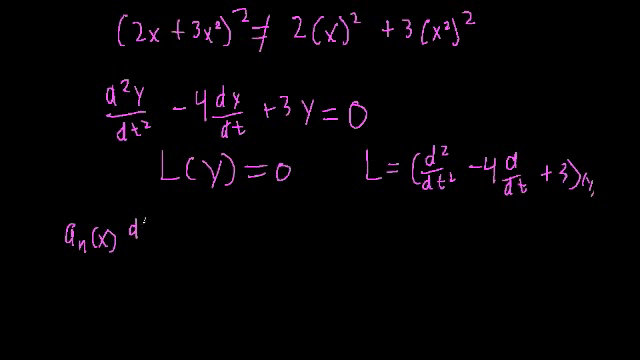 (2x + 3x²)² ≠ 2(x)² + 3(x²)²
d²y/dt² - 4 dy/dt + 3y = 0
L(y) = 0 L = (d²/dt² - 4 d/dt + 3)(y)
aₙ(x) d